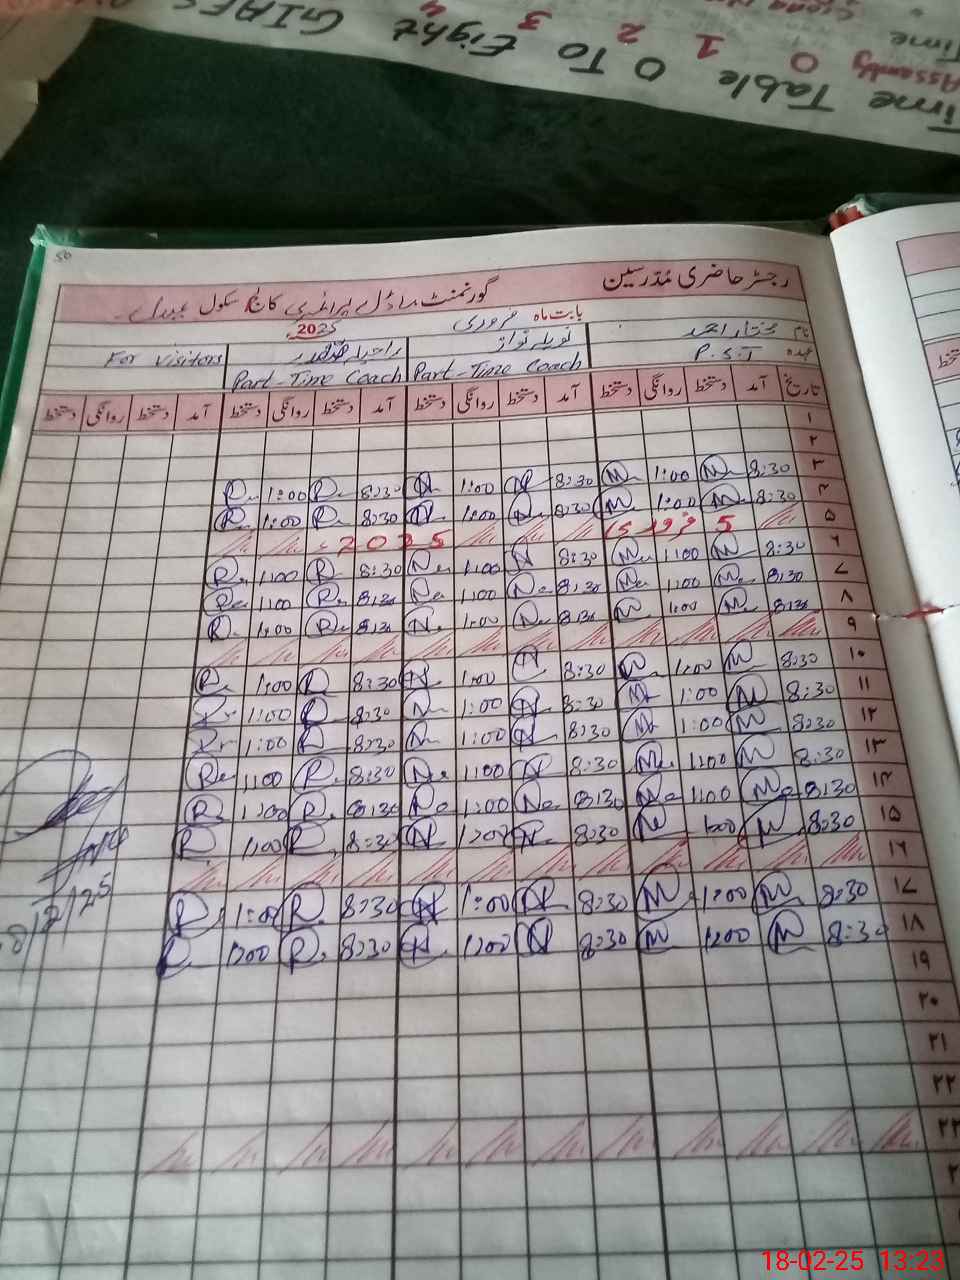 Time Table 0 To Eight
Assembly 0 1 2 3 4
Time
50
رجسٹر حاضری مُدرسین گورنمنٹ ماڈل پرائمری سکول
بابت ماہ فروری 2025
نام مختار احمد نویلہ نواز راحیلہ For Visitors
عہدہ P.S.T Part-Time Coach Part-Time Coach
تاریخ آمد دستخط روانگی دستخط آمد دستخط روانگی دستخط آمد دستخط روانگی دستخط آمد دستخط روانگی دستخط
۱
۲
۳ 8:30 M 1:00 M 8:30 N 1:00 N 8:30 R 1:00 R
۴ 8:30 M 1:00 M 8:30 N 1:00 N 8:30 R 1:00 R
۵ 5 فروری 2025
۶ 8:30 M 1:00 M 8:30 N 1:00 N 8:30 R 1:00 R
۷ 8:30 M 1:00 M 8:30 N 1:00 N 8:30 R 1:00 R
۸ 8:30 M 1:00 M 8:30 N 1:00 N 8:30 R 1:00 R
۹
۱۰ 8:30 M 1:00 M 8:30 N 1:00 N 8:30 R 1:00 R
۱۱ 8:30 M 1:00 M 8:30 N 1:00 N 8:30 R 1:00 R
۱۲ 8:30 M 1:00 M 8:30 N 1:00 N 8:30 R 1:00 R
۱۳ 8:30 M 1:00 M 8:30 N 1:00 N 8:30 R 1:00 R
۱۴ 8:30 M 1:00 M 8:30 N 1:00 N 8:30 R 1:00 R
۱۵ 8:30 M 1:00 M 8:30 N 1:00 N 8:30 R 1:00 R
۱۶
۱۷ 8:30 M 1:00 M 8:30 N 1:00 N 8:30 R 1:00 R
۱۸ 8:30 M 1:00 M 8:30 N 1:00 N 8:30 R 1:00 R
۱۹
۲۰
۲۱
۲۲
۲۳
18-02-25 13:23